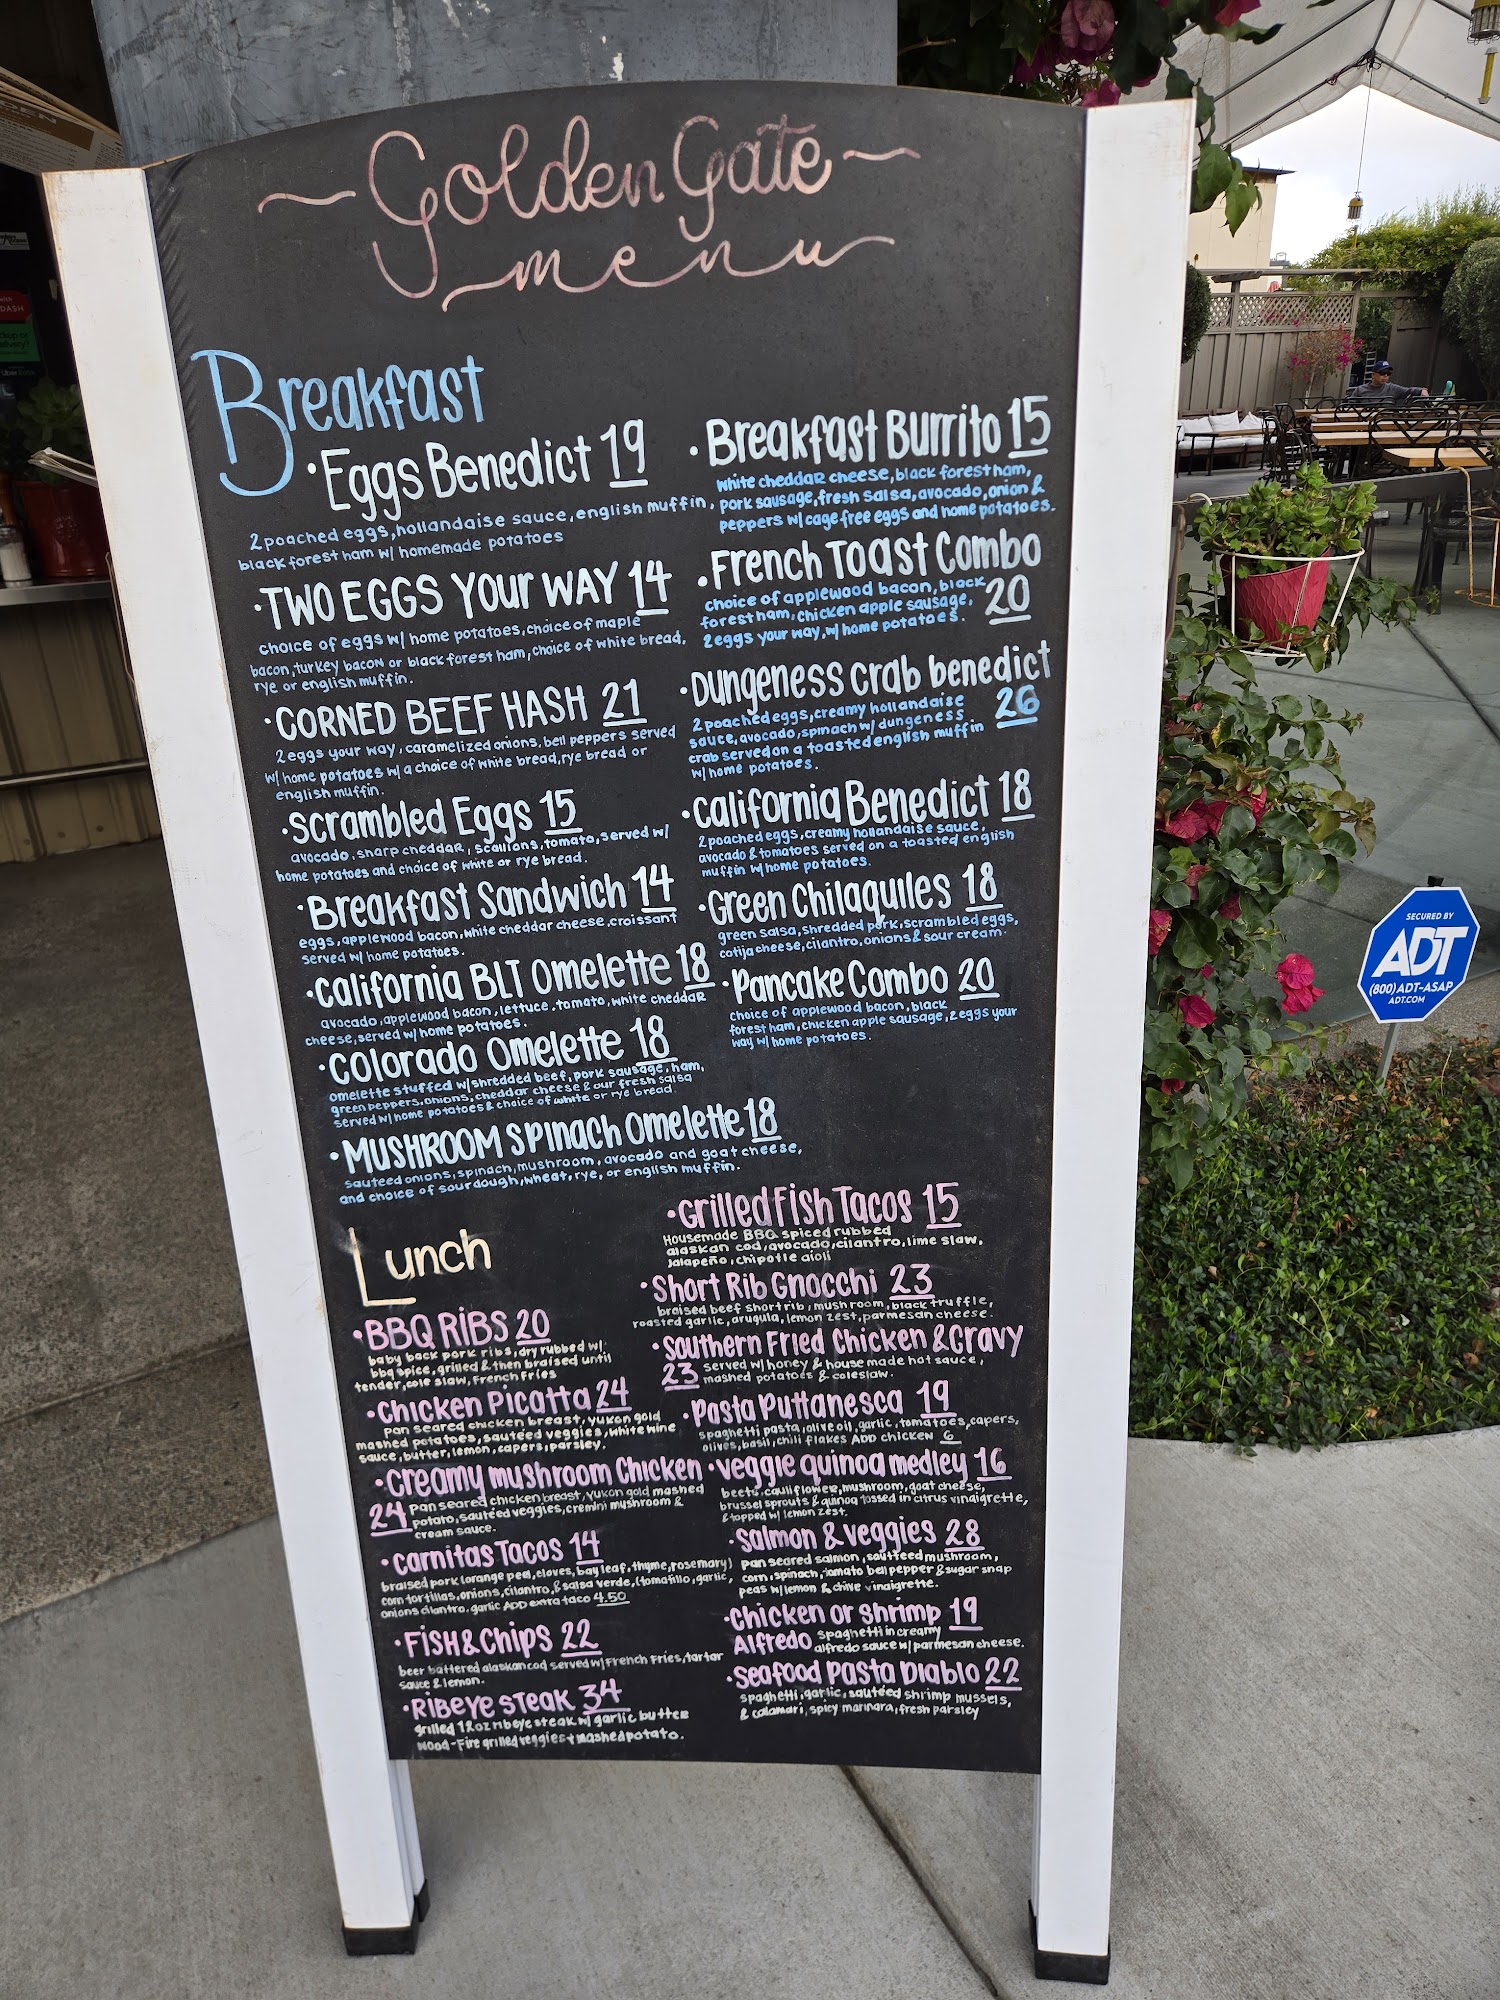 Golden Gate
menu
Breakfast
• Eggs Benedict 19
2 poached eggs, hollandaise sauce, english muffin,
black forest ham w/ homemade potatoes
• TWO EGGS YOUR WAY 14
choice of eggs w/ home potatoes, choice of maple
bacon, turkey bacon or black forest ham, choice of white bread,
rye or english muffin.
• CORNED BEEF HASH 21
2 eggs your way, caramelized onions, bell peppers served
w/ home potatoes w/ a choice of white bread, rye bread or
english muffin.
• Scrambled Eggs 15
avocado, sharp cheddar, scallions, tomato, served w/
home potatoes and choice of white or rye bread.
• Breakfast Sandwich 14
eggs, applewood bacon, white cheddar cheese, croissant
served w/ home potatoes.
• California BLT Omelette 18
avocado, applewood bacon, lettuce, tomato, white cheddar
cheese, served w/ home potatoes.
• Colorado Omelette 18
omelette stuffed w/ shredded beef, pork sausage, ham,
green peppers, onions, cheddar cheese & our fresh salsa
served w/ home potatoes & choice of white or rye bread
• MUSHROOM Spinach Omelette 18
sauteed onions, spinach, mushroom, avocado and goat cheese,
and choice of sourdough, wheat, rye, or english muffin.
• Breakfast Burrito 15
white cheddar cheese, black forest ham,
pork sausage, fresh salsa, avocado, onion &
peppers w/ cage free eggs and home potatoes.
• French Toast Combo
choice of applewood bacon, black
forest ham, chicken apple sausage, 20
2 eggs your way, w/ home potatoes.
• Dungeness crab benedict
2 poached eggs, creamy hollandaise 26
sauce, avocado, spinach w/ dungeness
crab served on a toasted english muffin
w/ home potatoes.
• California Benedict 18
2 poached eggs, creamy hollandaise sauce,
avocado & tomatoes served on a toasted english
muffin w/ home potatoes.
• Green Chilaquiles 18
green salsa, shredded pork, scrambled eggs,
cotija cheese, cilantro, onions & sour cream.
• Pancake Combo 20
choice of applewood bacon, black
forest ham, chicken apple sausage, 2 eggs your
way w/ home potatoes.
Lunch
• BBQ RIBS 20
baby back pork ribs, dry rubbed w/
bbq spice, grilled & then braised until
tender, cole slaw, French Fries
• Chicken Picatta 24
pan seared chicken breast, yukon gold
mashed potatoes, sautéed veggies, white wine
sauce, butter, lemon, capers, parsley.
• Creamy mushroom Chicken
24 pan seared chicken breast, yukon gold mashed
potato, sautéed veggies, cremini mushroom &
cream sauce.
• Carnitas Tacos 14
braised pork (orange peel, cloves, bay leaf, thyme, rosemary)
corn tortillas, onions, cilantro, & salsa verde, (tomatillo, garlic,
onions cilantro, garlic ADD extra taco 4.50
• FISH & Chips 22
beer battered alaskan cod served w/ French Fries, tartar
sauce & lemon.
• Ribeye Steak 34
grilled 12oz ribeye steak w/ garlic butter
wood-Fire grilled veggies + mashed potato.
• Grilled Fish Tacos 15
Housemade BBQ spiced rubbed
alaskan cod, avocado, cilantro, lime slaw,
jalapeño, chipotle aioli
• Short Rib Gnocchi 23
braised beef short rib, mushroom, black truffle,
roasted garlic, arugula, lemon zest, parmesan cheese.
• Southern Fried Chicken & Gravy
23 served w/ honey & house made hot sauce,
mashed potatoes & coleslaw.
• Pasta Puttanesca 19
spaghetti pasta, olive oil, garlic, tomatoes, capers,
olives, basil, chili flakes ADD chicken 6
• veggie quinoa medley 16
beets, cauliflower, mushroom, goat cheese,
brussel sprouts & quinoa tossed in citrus vinaigrette,
& topped w/ lemon zest.
• Salmon & veggies 28
pan seared salmon, sautteed mushroom,
corn, spinach, tomato bell pepper & sugar snap
peas w/ lemon & chive vinaigrette.
• Chicken or Shrimp 19
Alfredo spaghetti in creamy
alfredo sauce w/ parmesan cheese.
• Seafood Pasta Diablo 22
spaghetti, garlic, sautéed shrimp mussels,
& calamari, spicy marinara, fresh parsley
SECURED BY
ADT
(800) ADT-ASAP
ADT.COM